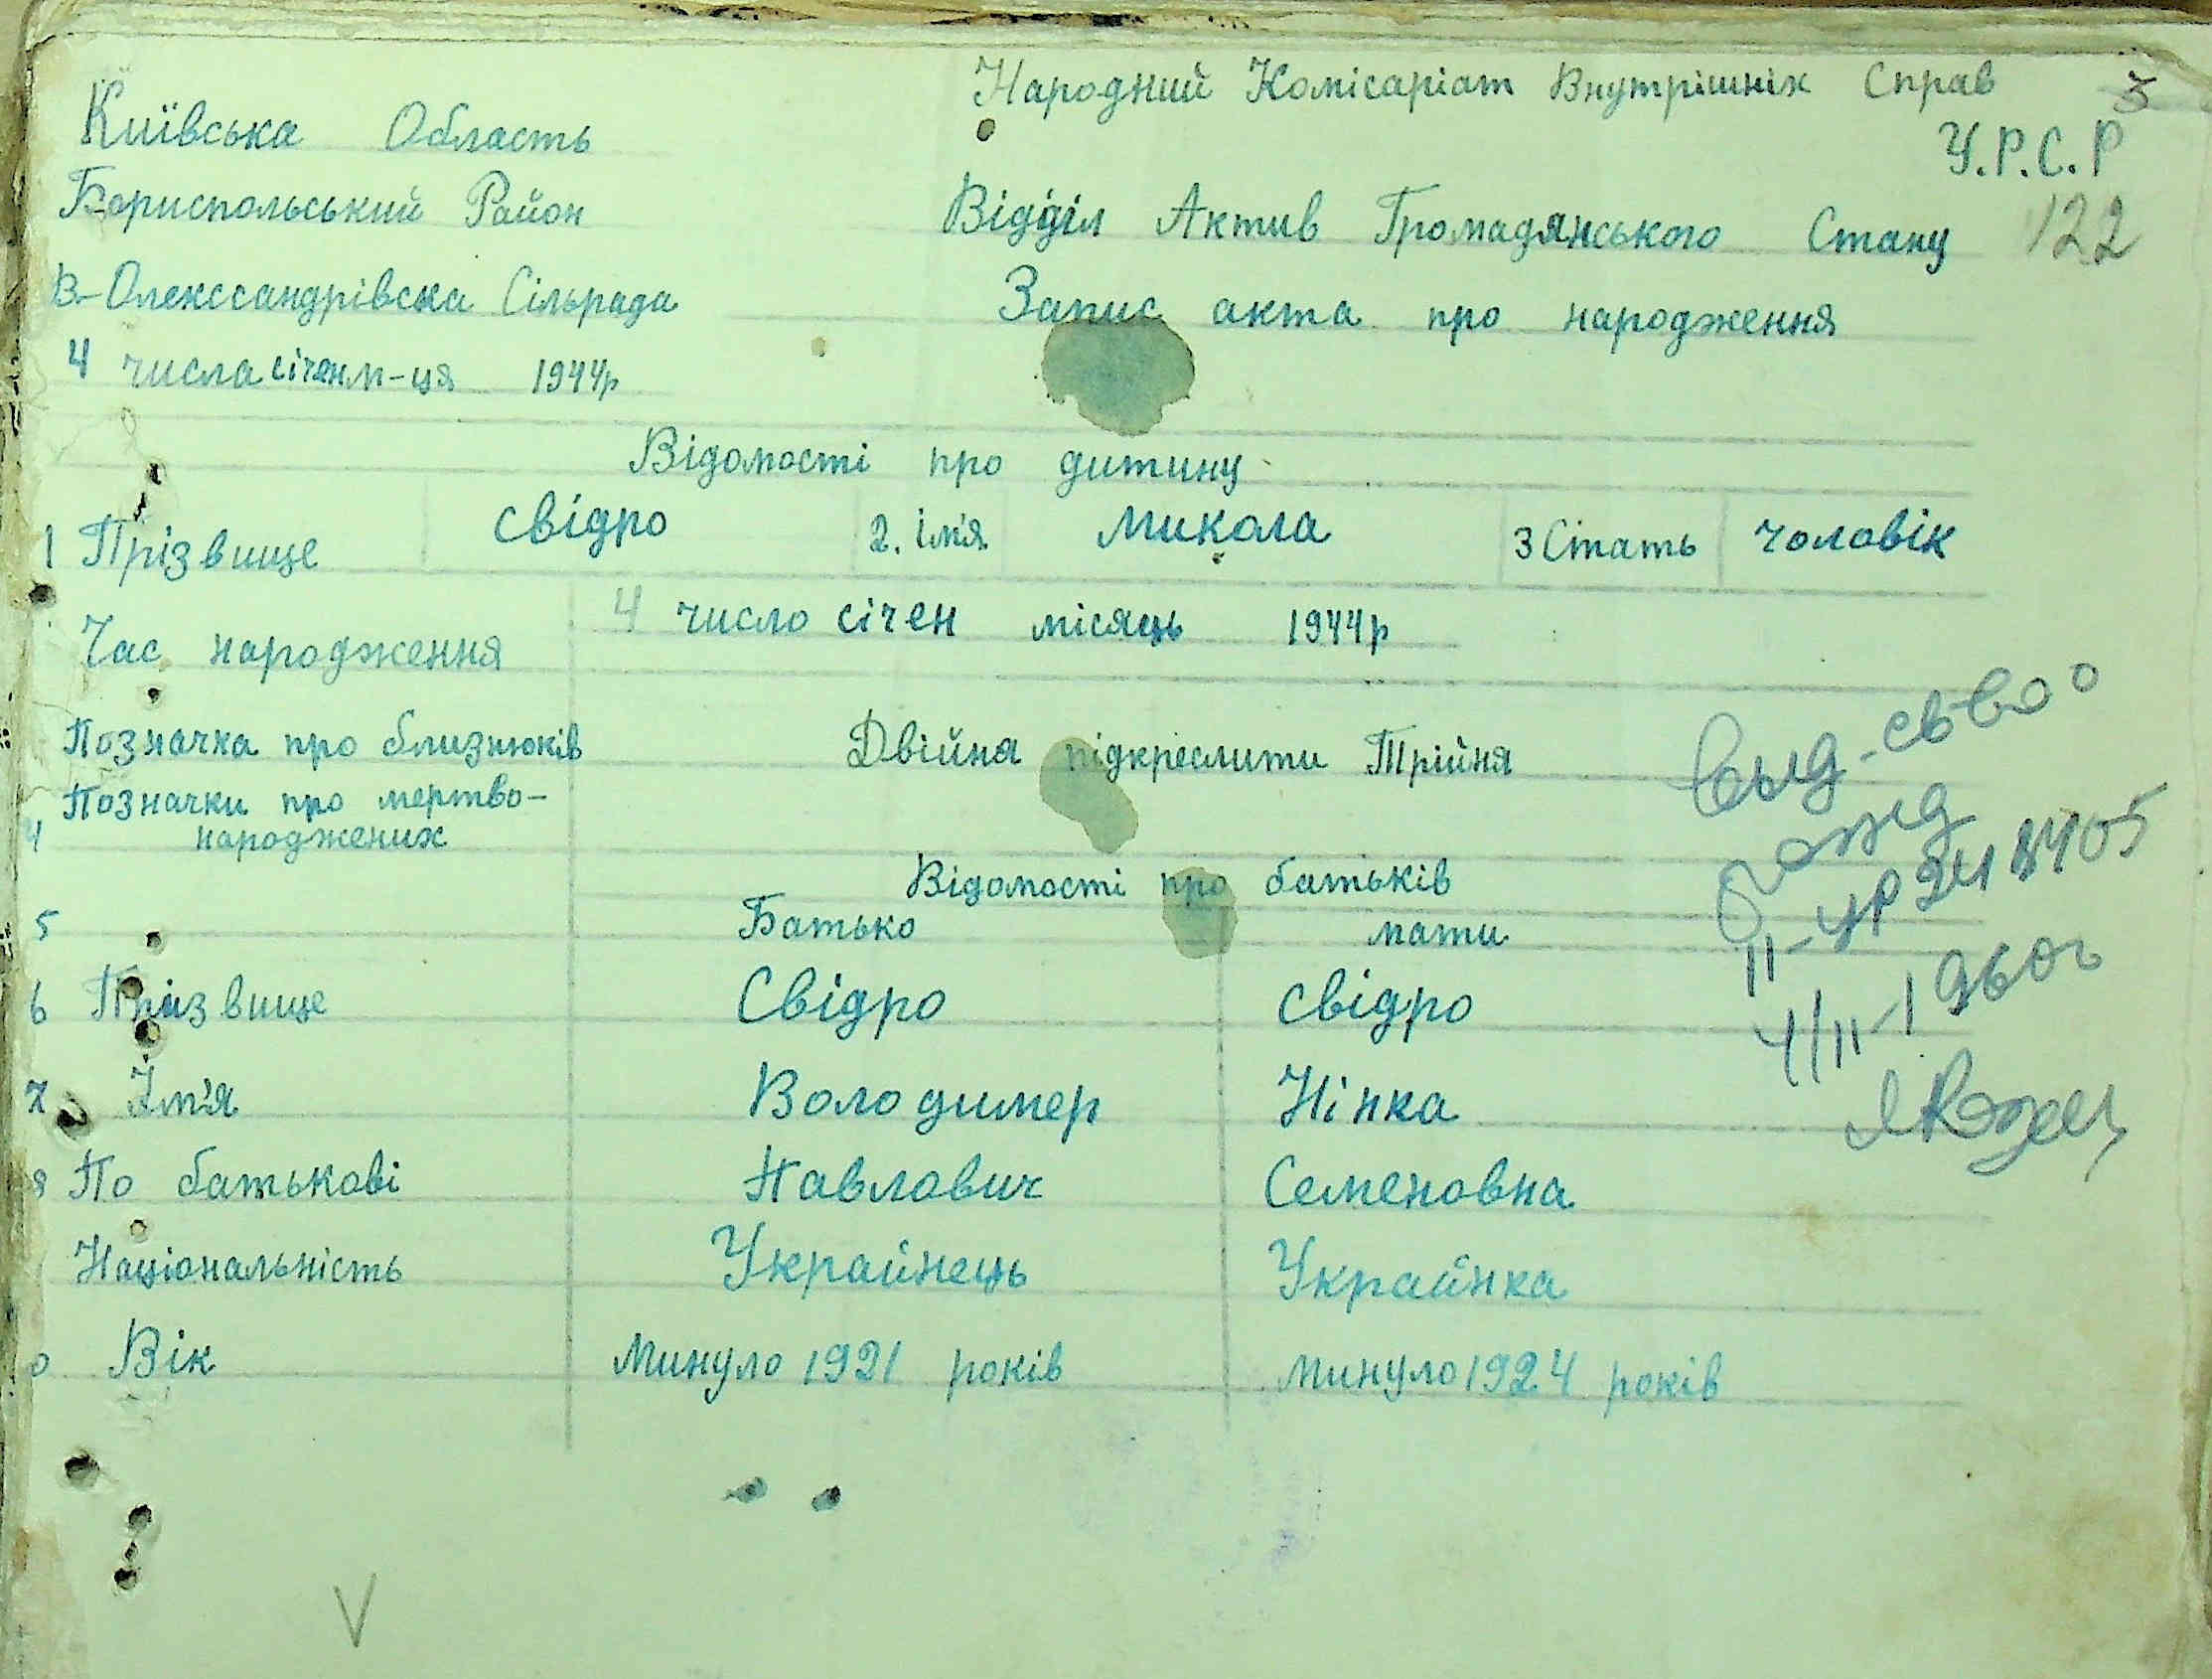 Народний Комісаріат Внутрішніх Справ 3
У.Р.С.Р
Київська Область
Бориспольський Район
Відділ Актив Громадянського Стану 122
В-Олекссандрівська Сільрада
Запис акта про народження
4 числа січен м-ця 1944р
Відомості про дитину
1 Прізвище свідро 2. імя Микола 3 Стать чоловік
Час народження 4 число січен місяць 1944р
Позначка про близнюків Двійня підкреслити Трійня
Позначки про мертво-
4 народжених
Відомості про батьків
5 Батько мати
6 Прізвище Свідро свідро
7 Ім'я Володимер Нінка
8 По батькові Павлович Семеновна
Національність Украйнець Украйнка
0 Вік Минуло 1921 років минуло 1924 років
выд. св-во о
рожд
II-УР
4/II-1960г
V